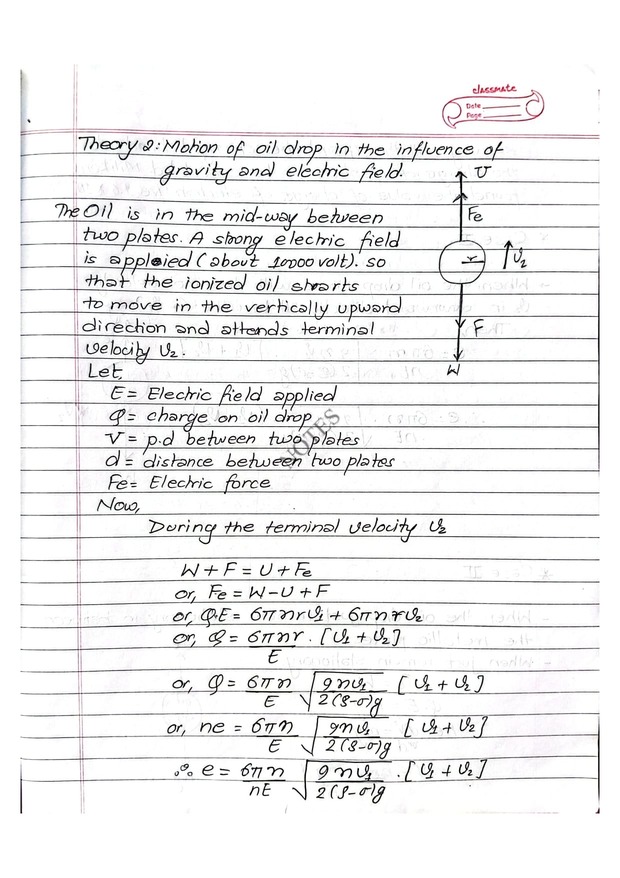 classmate
Date
Page
Theory 2: Motion of oil drop in the influence of
gravity and electric field.
U
Fe
The Oil is in the mid-way between
two plates. A strong electric field
is apploied (about 10000 volt). so
r
v₂
that the ionized oil starts
to move in the vertically upward
direction and attends terminal
F
velocity v₂.
W
Let,
E = Electric field applied
Q = charge on oil drop
V = p.d between two plates
d = distance between two plates
Fe = Electric force
NOTES
Now,
During the terminal velocity v₂
W + F = U + Fe
or, Fe = W - U + F
or, Q.E = 6πηrv₁ + 6πηrv₂
or, Q = 6πηr/E . [v₁ + v₂]
or, Q = 6πη/E √(9ηv₁/2(ρ-σ)g) [v₁ + v₂]
or, ne = 6πη/E √(9ηv₁/2(ρ-σ)g) [v₁ + v₂]
∴ e = 6πη/nE √(9ηv₁/2(ρ-σ)g) . [v₁ + v₂]